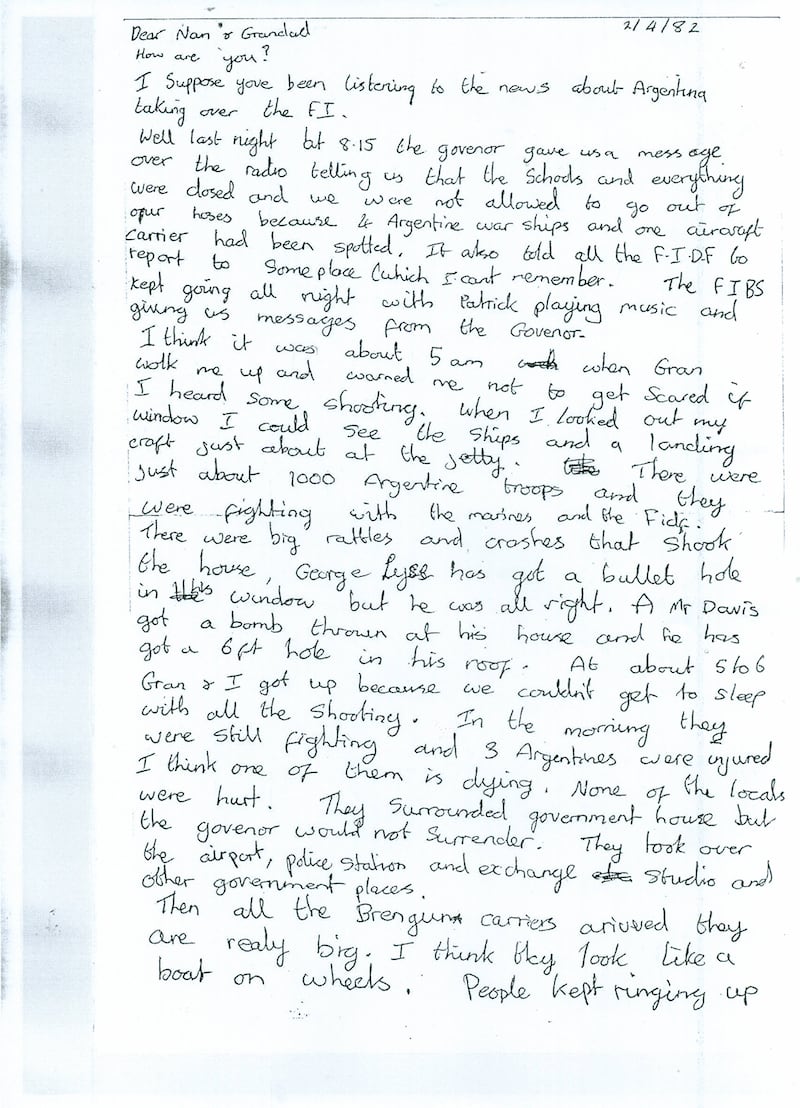 Dear Nan & Grandad 2/4/82
How are you?
I Suppose yove been listening to the news about Argentina
taking over the FI.
Well last night at 8.15 the govenor gave us a message
over the radio telling us that the Schools and everything
were closed and we were not allowed to go out of
opur hoses because 4 Argentine war ships and one aircraft
carrier had been spotted. It also told all the F.I.D.F to
report to Someplace (which I cant remember. The FIBS
kept going all night with Patrick playing music and
giving us messages from the Govenor.
I think it was about 5 am when Gran
wolk me up and warned me not to get Scared if
I heard some shooting. When I looked out my
window I could see the ships and a landing
craft just about at the jetty. There were
just about 1000 Argentine troops and they
were fighting with the marines and the Fidf.
There were big rattles and crashes that shook
the house, George has got a bullet hole
in his window but he was all right. A Mr Davis
got a bomb thrown at his house and he has
got a 6ft hole in his roof. At about 5 to 6
Gran & I got up because we couldn't get to sleep
with all the shooting. In the morning they
were still fighting and 3 Argentines were injured
I think one of them is dying. None of the locals
were hurt. They Surrounded government house but
the govenor would not Surrender. They took over
the airport, police station and exchange studio and
other government places.
Then all the Brengun carriers arivved they
are realy big. I think they look like a
boat on wheels. People kept ringing up